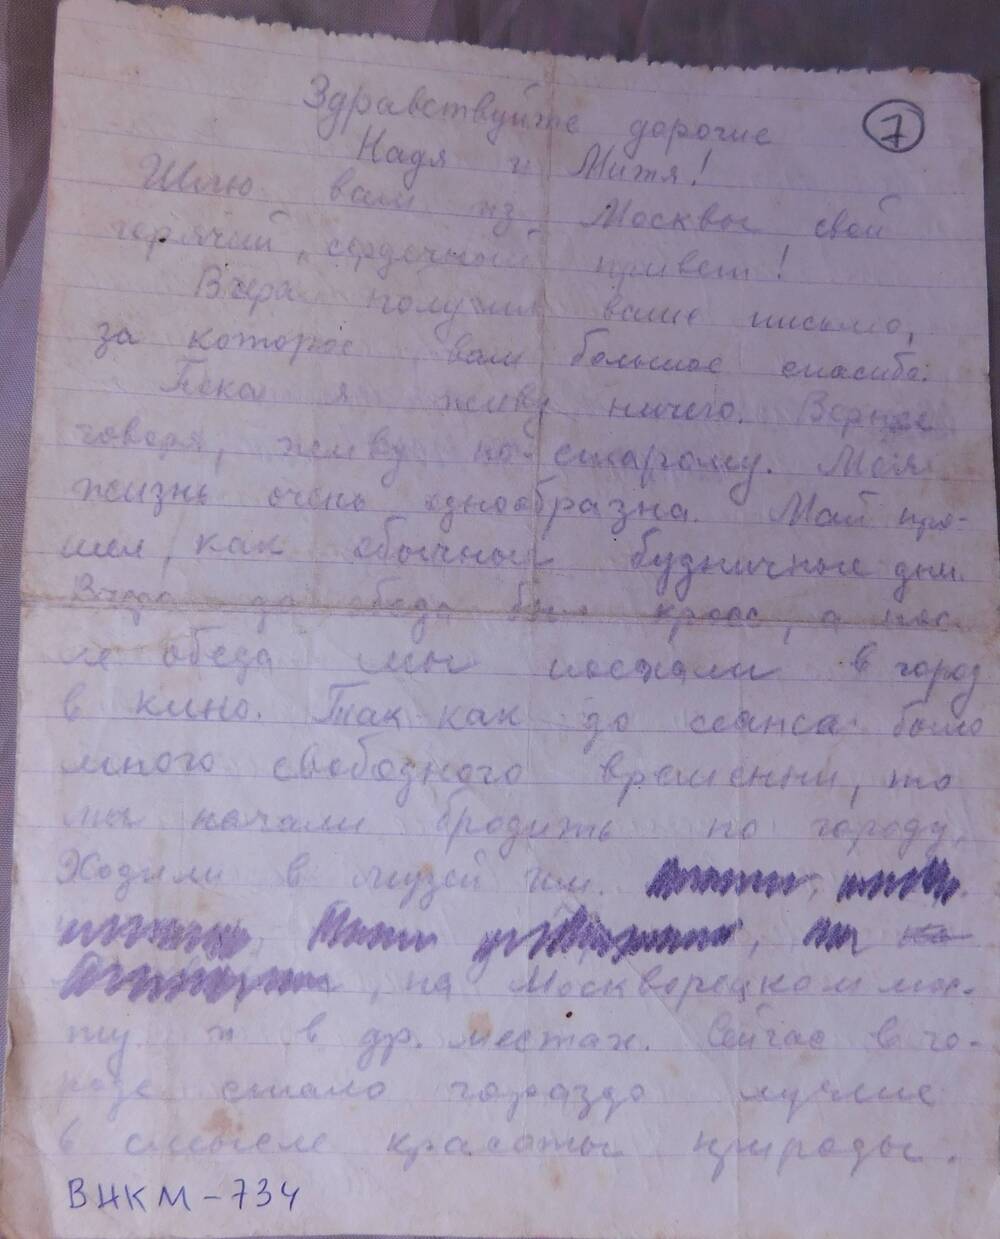 7
Здравствуйте дорогие
Надя и Митя!
Шлю вам из Москвы свой
горячий, сердечный привет!
Вчера получил ваше письмо,
за которое вам большое спасибо.
Пока я живу ничего. Вернее
говоря, живу по старому. Моя
жизнь очень однообразна. Май про-
шел, как обычные будничные дни.
Вчера до обеда был кросс, а пос-
ле обеда мы поехали в город
в кино. Так как до сеанса было
много свободного времени, то
мы начали бродить по городу.
Ходили в музей им.
на Москворецком мос-
ту и в др. местах. Сейчас в го-
роде стало гораздо лучше
в смысле красоты природы.
ВНКМ-734